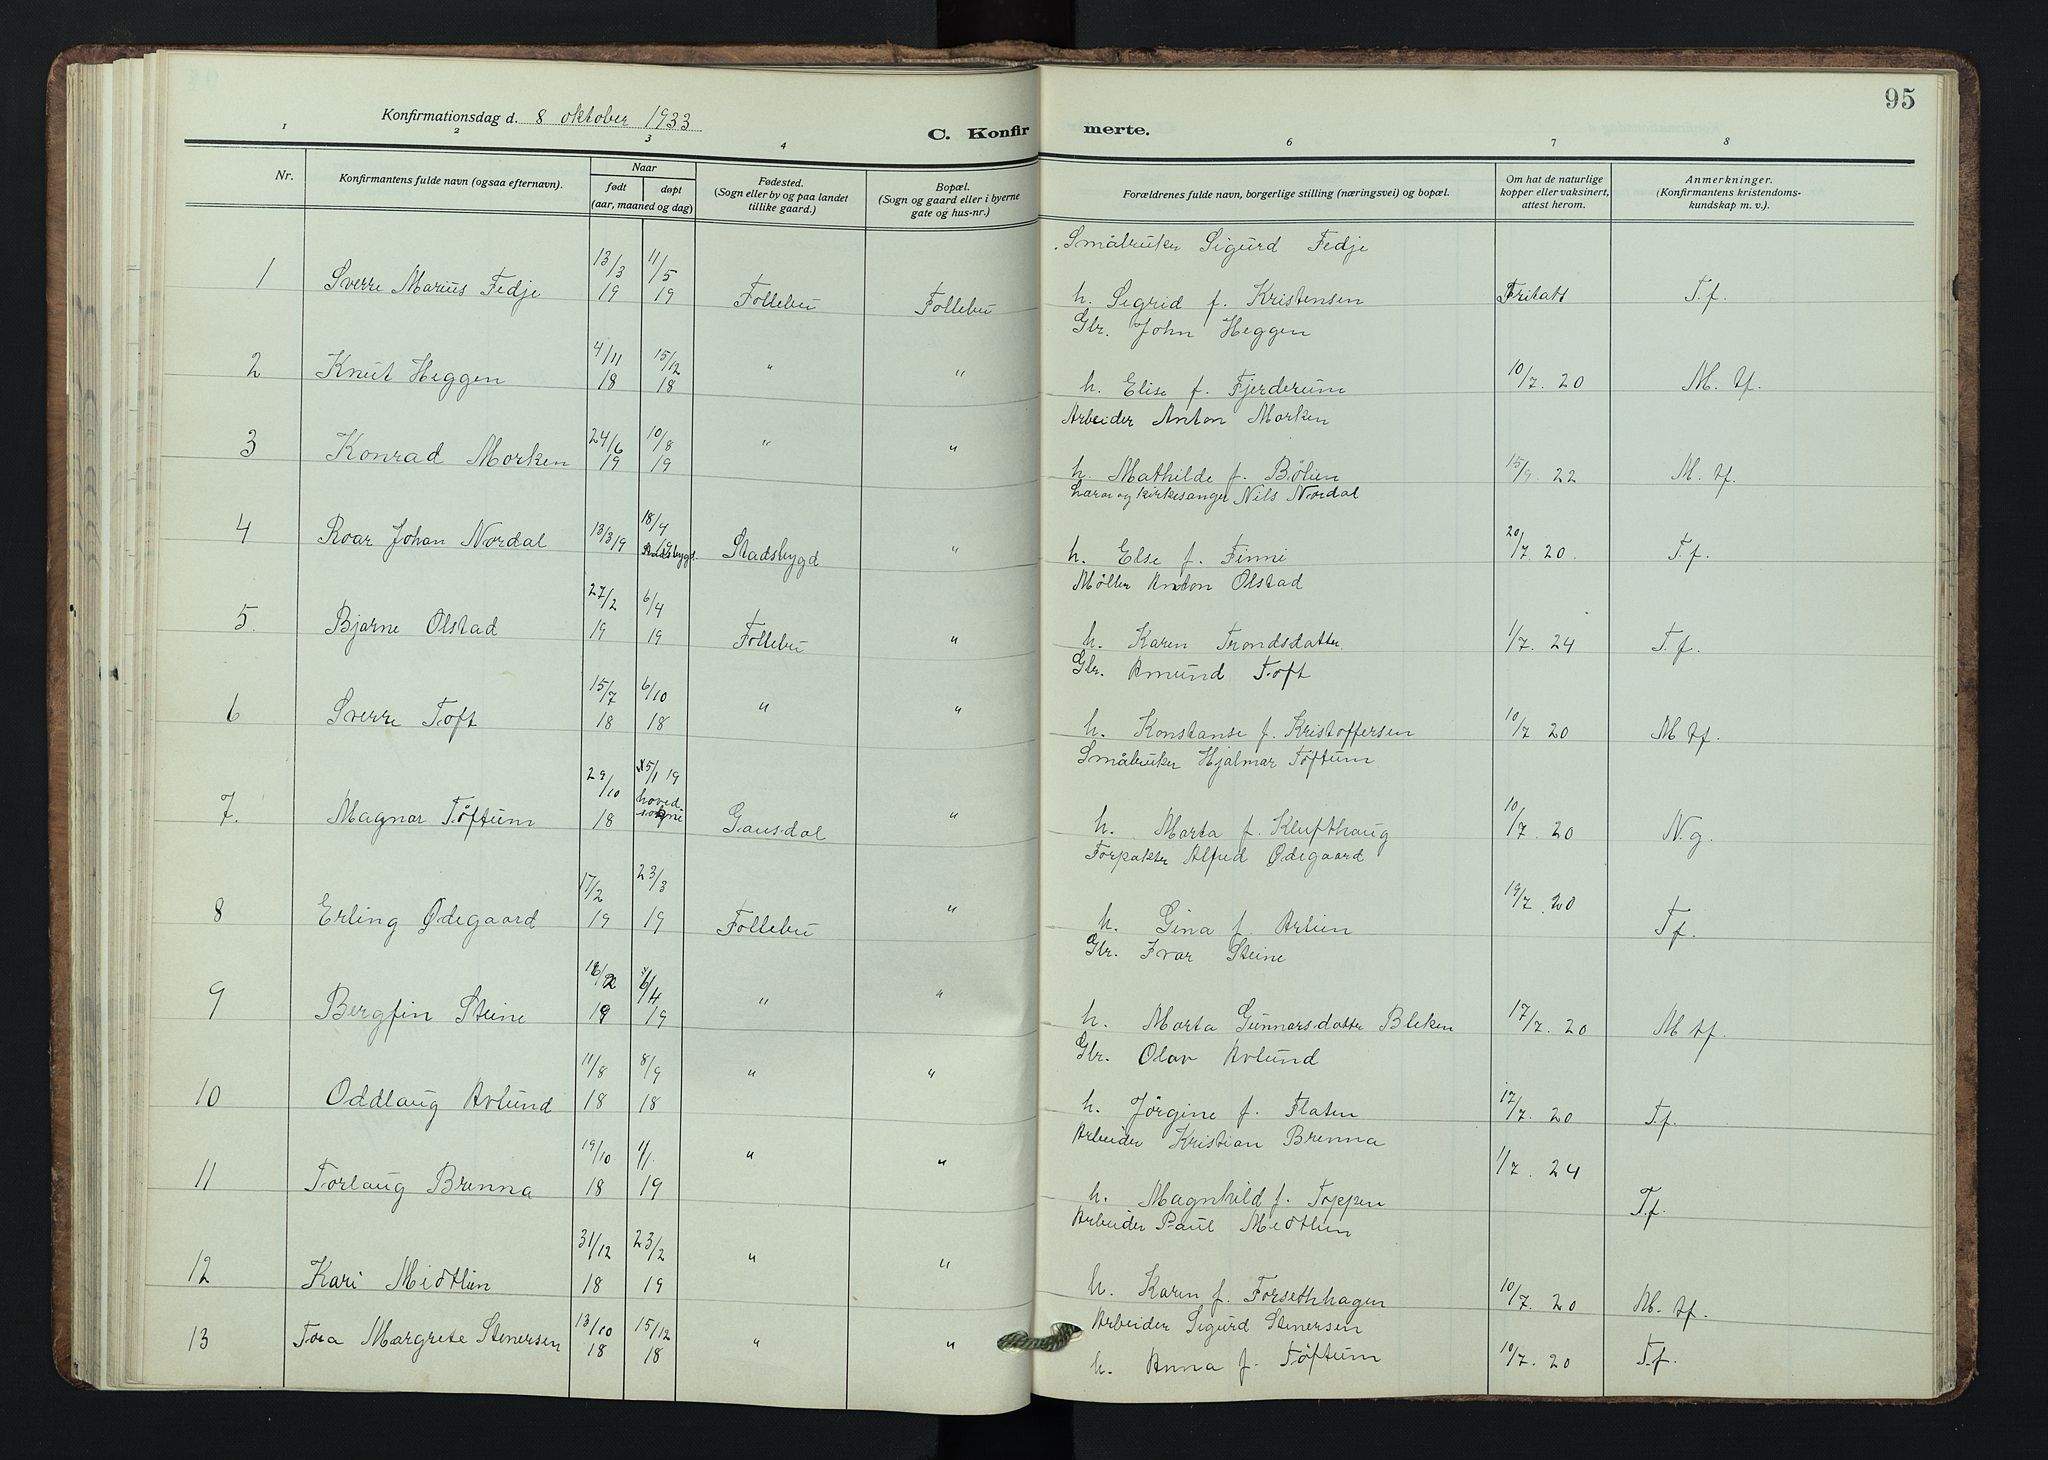 95
Konfirmationsdag d. 8 oktober 1933
C. Konfirmerte.
1 2 3 4 6 7 8
Nr.
Konfirmantens fulde navn (ogsaa efternavn).
Naar
født døpt
(aar, maaned og dag)
Fødested.
(Sogn eller by og paa landet
tillike gaard.)
Bopæl.
(Sogn og gaard eller i byerne
gate og hus-nr.)
Forældrenes fulde navn, borgerlige stilling (næringsvei) og bopæl.
Om hat de naturlige
kopper eller vaksinert,
attest herom.
Anmerkninger.
(Konfirmantens kristendoms-
kundskap m. v.).
Småbruker Sigurd Fedje
1 Sverre Marius Fedje 13/3 19 11/5 19 Follebu Follebu h. Sigrid f. Kristensen Fritatt T.f.
Gbr. John Heggen
2 Knut Heggen 4/11 18 15/12 18 " " h. Elise f. Fjerderum 10/7. 20 M. tf.
Arbeider Anton Morken
3 Konrad Morken 24/6 19 10/8 19 " " h. Mathilde f. Bølien 15/9. 22 M. tf.
Lærer og kirkesanger Nils Nordal
4 Roar Johan Nordal 13/3 19 18/4 19 Stadsbygd. Stadsbygd " h. Else f. Finni 20/7. 20. T.f.
Møller Anton Olstad
5. Bjarne Olstad 27/2 19 6/4 19 Follebu " h. Karen Trondsdatter 1/7. 24 T.f.
Gbr. Amund Toft
6 Sverre Toft 15/7 18 6/10 18 " " h. Konstanse f. Kristoffersen 10/7 20 M tf.
Småbruker Hjalmar Tøftum
7. Magnar Tøftum 29/10 18 5/1 19 hovedsokne Gausdal " h. Marta f. Klufthaug 10/7. 20 N.g.
Forpakter Alfred Ødegaard
8 Erling Ødegaard 17/2 19 23/3 19 Follebu " h. Gina f. Arlien 19/7. 20 T.f.
Gbr. Ivar Steine
9 Bergfin Steine 16/2 19 6/4 19 " " h. Marta Gunnarsdatter Bleken 17/7. 20 M tf.
Gbr. Olav Avlund
10 Oddlaug Avlund 11/8 18 8/9 18 " " h. Jørgine f. Flaten 17/7. 20 T.f.
Arbeider Kristian Brenna
11 Torlaug Brenna 19/10 18 1/1. 19 " " h. Magnhild f. Toppen 1/7. 24 T.f.
Arbeider Paul Midtlien
12 Kari Midtlien 31/12 18 23/2 19 " " h. Karen f. Forsethhagen 10/7. 20 M. tf.
Arbeider Sigurd Stenersen
13 Tora Margrete Stenersen 13/10 18 15/12 18 " " h. Anna f. Tøftum 10/7. 20 T.f.